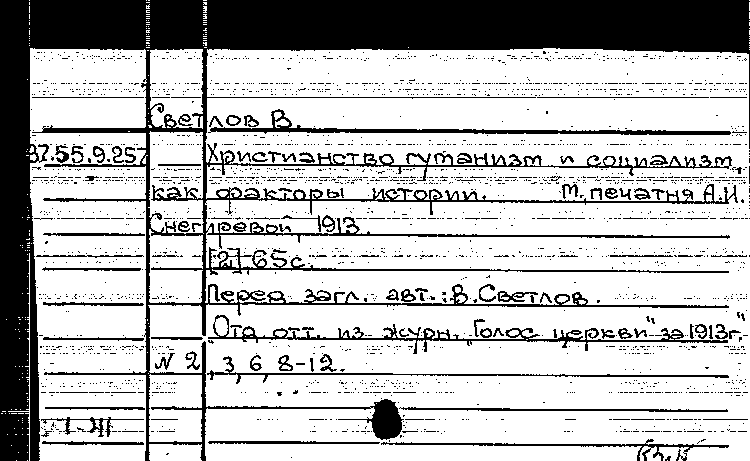 Светлов В.
37.55.9.257 Христианство, гуманизм и социализм,
как факторы истории. М, печатня А.И.
Снегиревой, 1913.
[2],65с.
Перед загл. авт.: В.Светлов.
Отд. отт. из журн. "Голос церкви" за 1913г."
N 2, 3, 6, 8-12.